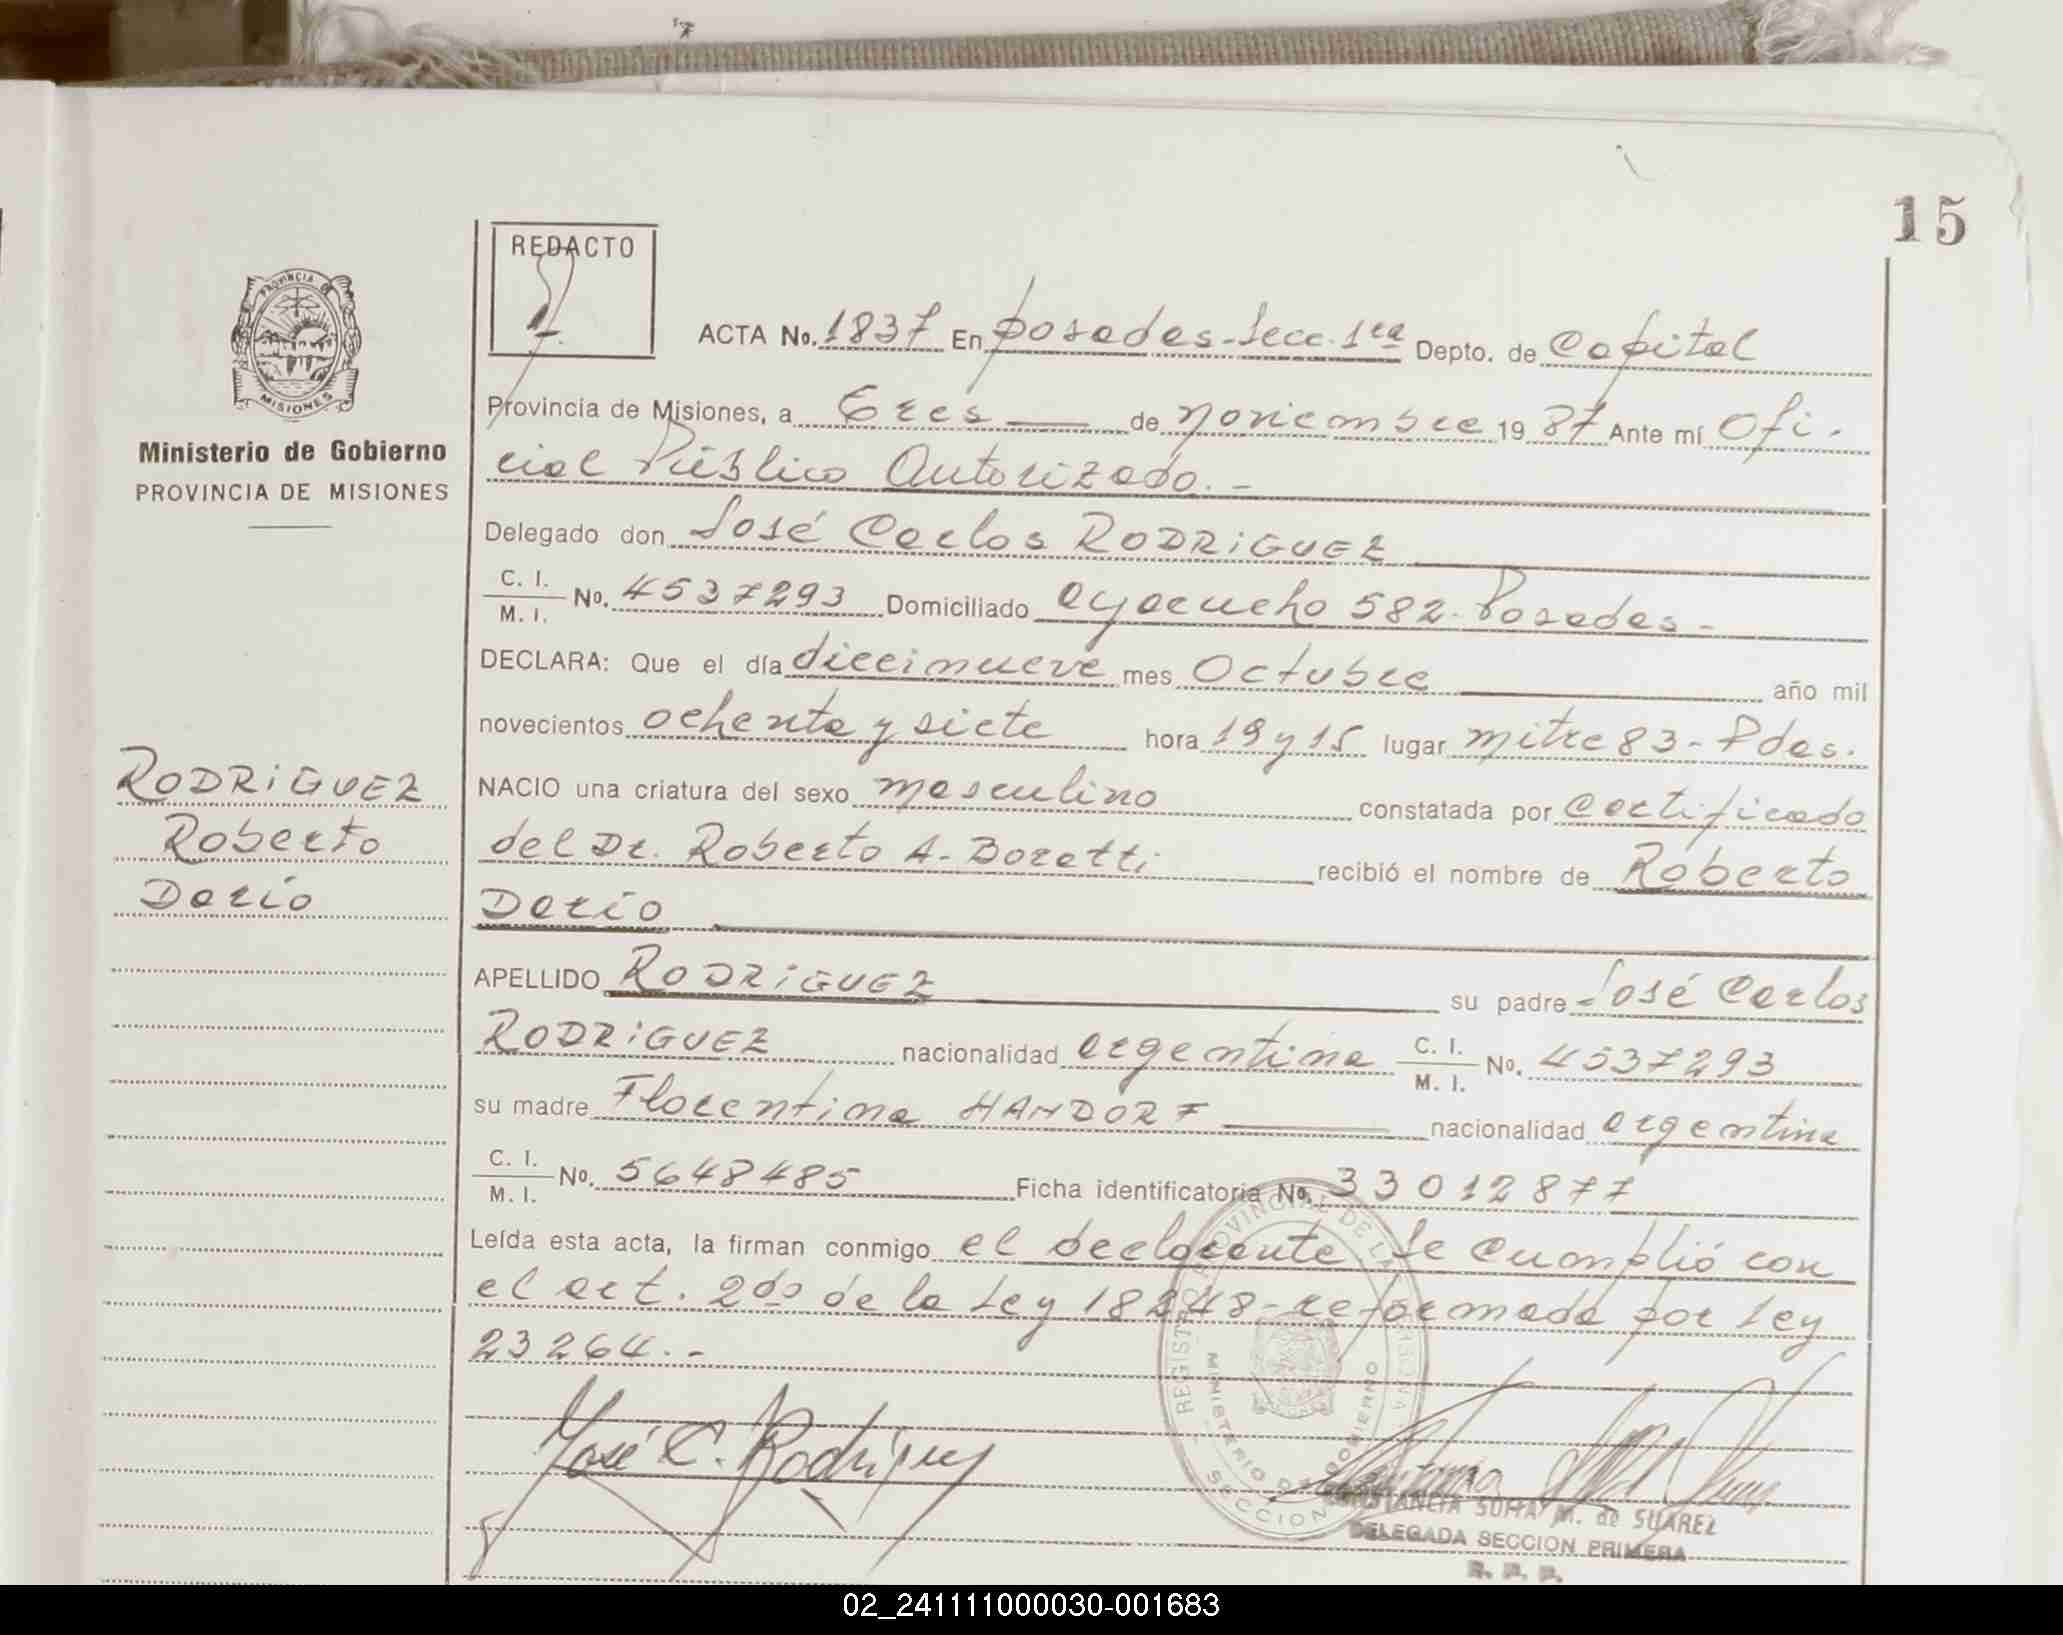 15
REDACTO
PROVINCIA DE
MISIONES
Ministerio de Gobierno
PROVINCIA DE MISIONES
ACTA No. 1837 En Posadas-Secc. 1ra Depto. de Capital
Provincia de Misiones, a tres de noviembre 19 87 Ante mí Ofi-
cial Público Autorizado.-
Delegado don José Carlos RODRiGUEZ
C. I. / M. I. No. 4537293 Domiciliado ayacucho 582-Posadas-
DECLARA: Que el día diecinueve mes Octubre año mil
novecientos ochenta y siete hora 19 y 15 lugar mitre 83-Pdas.
NACIO una criatura del sexo masculino constatada por certificado
del Dr. Roberto A. Boretti recibió el nombre de Roberto
Darío
APELLIDO RODRiGUEZ su padre José Carlos
RODRiGUEZ nacionalidad argentina C. I. / M. I. No. 4537293
su madre Florentina HANDORF nacionalidad argentina
C. I. / M. I. No. 5648485 Ficha identificatoria No. 33012877
Leída esta acta, la firman conmigo el declarante Se cumplió con
el art. 2do de la Ley 18248-reformada por Ley
23264.-
RODRiGUEZ
Roberto
Darío
José C. Rodriguez
REGISTRO PROVINCIAL DE LAS PERSONAS
MINISTERIO DE GOBIERNO
SECCION
CONSTANCIA M. de SUAREZ
DELEGADA SECCION PRIMERA
R. P. P.
02_241111000030-001683